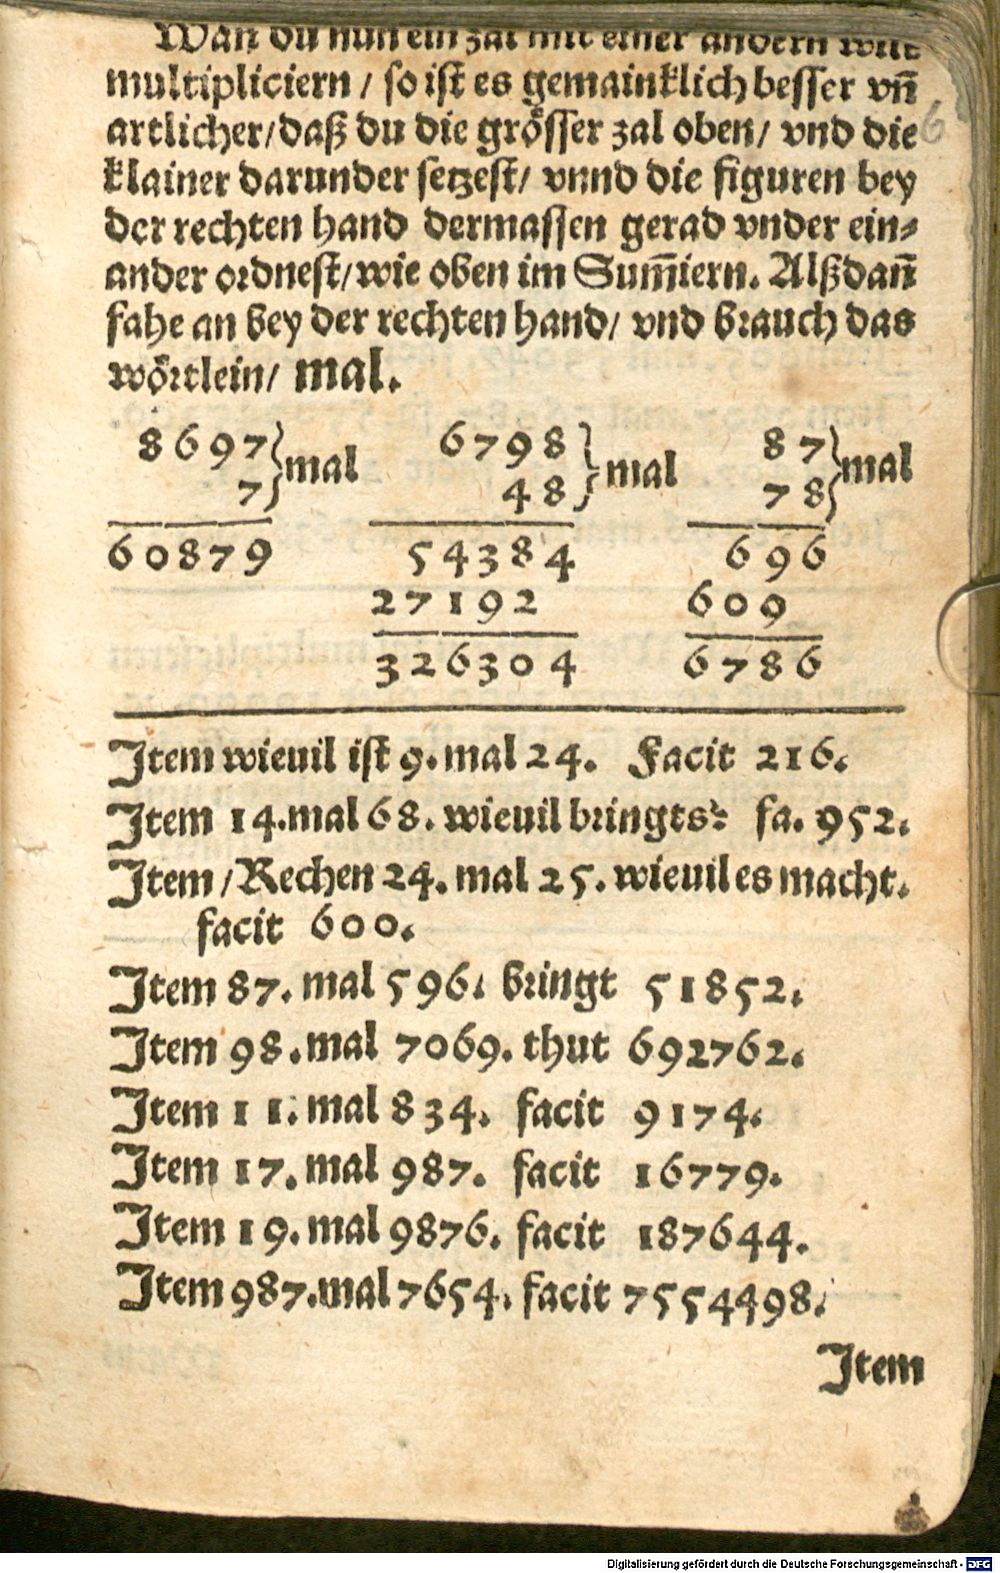 Wañ du nun ein zal mit einer andern wilt
multipliciern / so ist es gemainklich besser vñ
artlicher/daß du die grösser zal oben/ vnd die 6
klainer darunder setzest/ vnnd die figuren bey
der rechten hand dermassen gerad vnder ein⸗
ander ordnest/wie oben im Sum̃iern. Alßdañ
fahe an bey der rechten hand/ vnd brauch das
wörtlein/ mal.
8697 } mal 6798 } mal 87 } mal
7 48 78
60879 54384 696
27192 609
326304 6786
Item wieuil ist 9. mal 24. Facit 216.
Item 14.mal 68. wieuil bringts? fa. 952.
Item /Rechen 24. mal 25. wieuil es macht.
facit 600.
Item 87. mal 596. bringt 51852.
Item 98. mal 7069. thut 692762.
Item 11. mal 834. facit 9174.
Item 17. mal 987. facit 16779.
Item 19. mal 9876. facit 187644.
Item 987.mal 7654. facit 7554498.
Item
Digitalisierung gefördert durch die Deutsche Forschungsgemeinschaft - DFG